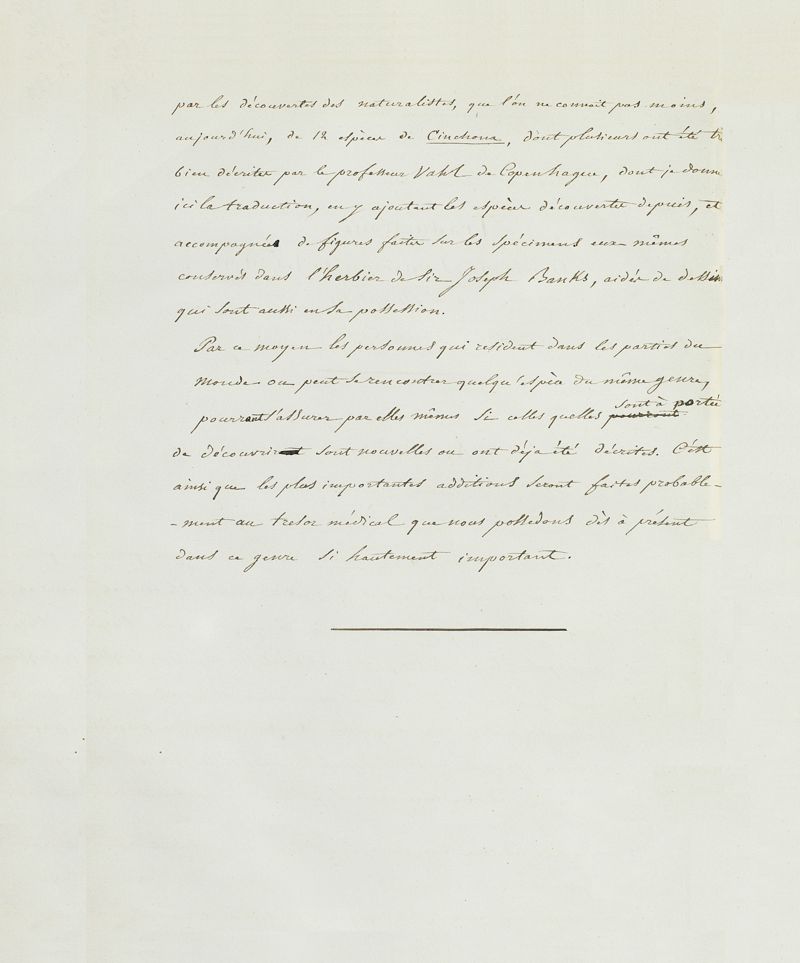 par les découvertes des naturalistes, que l'on ne connait pas moins,
aujourd'hui, de 12 espèces de Cinchona, dont plusieurs ont été tr
bien décrites par le professeur Vahl de Copenhague, dont je donne
ici la traduction, en y ajoutant les espèces découvertes depuis, et
accompagnées de figures faites sur les spécimens eux-mêmes
conservés dans l'herbier de Sir Joseph Banks, aidés de dessins
qui sont aussi en sa possession.
Par ce moyen les personnes qui resident dans les parties du
monde ou peut se rencontrer quelqu'espèce du même genre,
sont à portée
pourront s'assurer par elles mêmes si celles quelles pourront
de découvrir sont nouvelles ou ont déja été décrites. C'est
ainsi que les plus importantes additions seront faites probable-
-ment au tresor médical que nous possedons dès à présent
dans ce genre si hautement important.